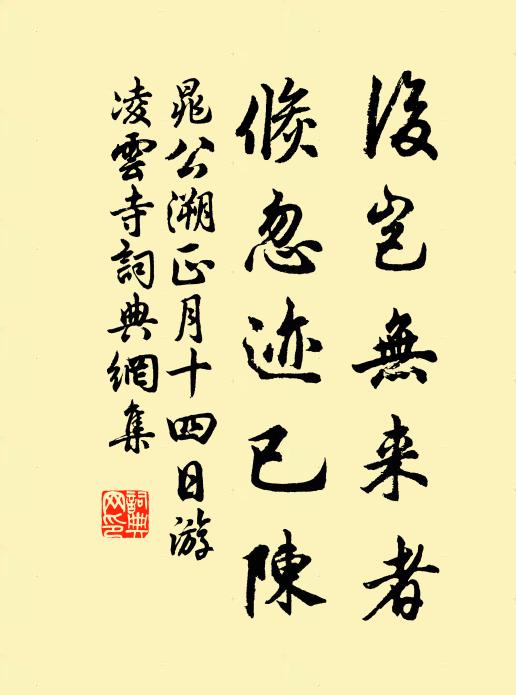 後岂無来者
倏忽迹已陳
晁公溯正月十四日游
凌雲寺詞典網集
詞典
网印